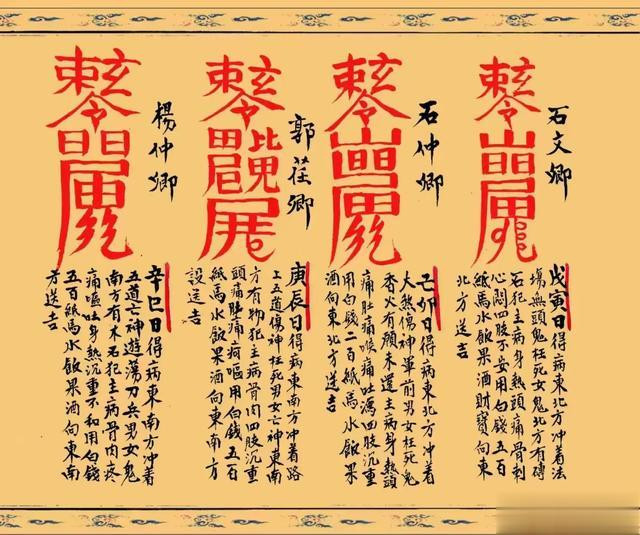 石文卿
戊寅日得病東北方冲着法
場無頭鬼枉死女鬼北方有磚
石犯主病身熱頭痛骨刺
心悶四肢不安用白錢
紙馬水飯果酒財寶向東
北方送吉
石仲卿
己卯日得病東北方冲着
大煞傷神軍前男女枉死鬼
香火有願未還主病身熱頭
痛肚痛喉痛吐瀉四肢沉重
用白錢二百紙馬水飯果
酒向東北方送吉
郭茌卿
庚辰日得病東南方冲着路
上五道傷神枉死男女亡神東南
方有物犯主病骨肉四肢沉重
頭痛肚痛疴嘔用白錢五百
紙馬水飯果酒向東南方
設送吉
楊仲卿
辛巳日得病東南方冲着
五道亡神遊蕩刀兵男女鬼
南方有木石犯主病骨肉疼
痛嘔吐身熱沉重不和用白錢
五百紙馬水飯果酒向東南
方送吉